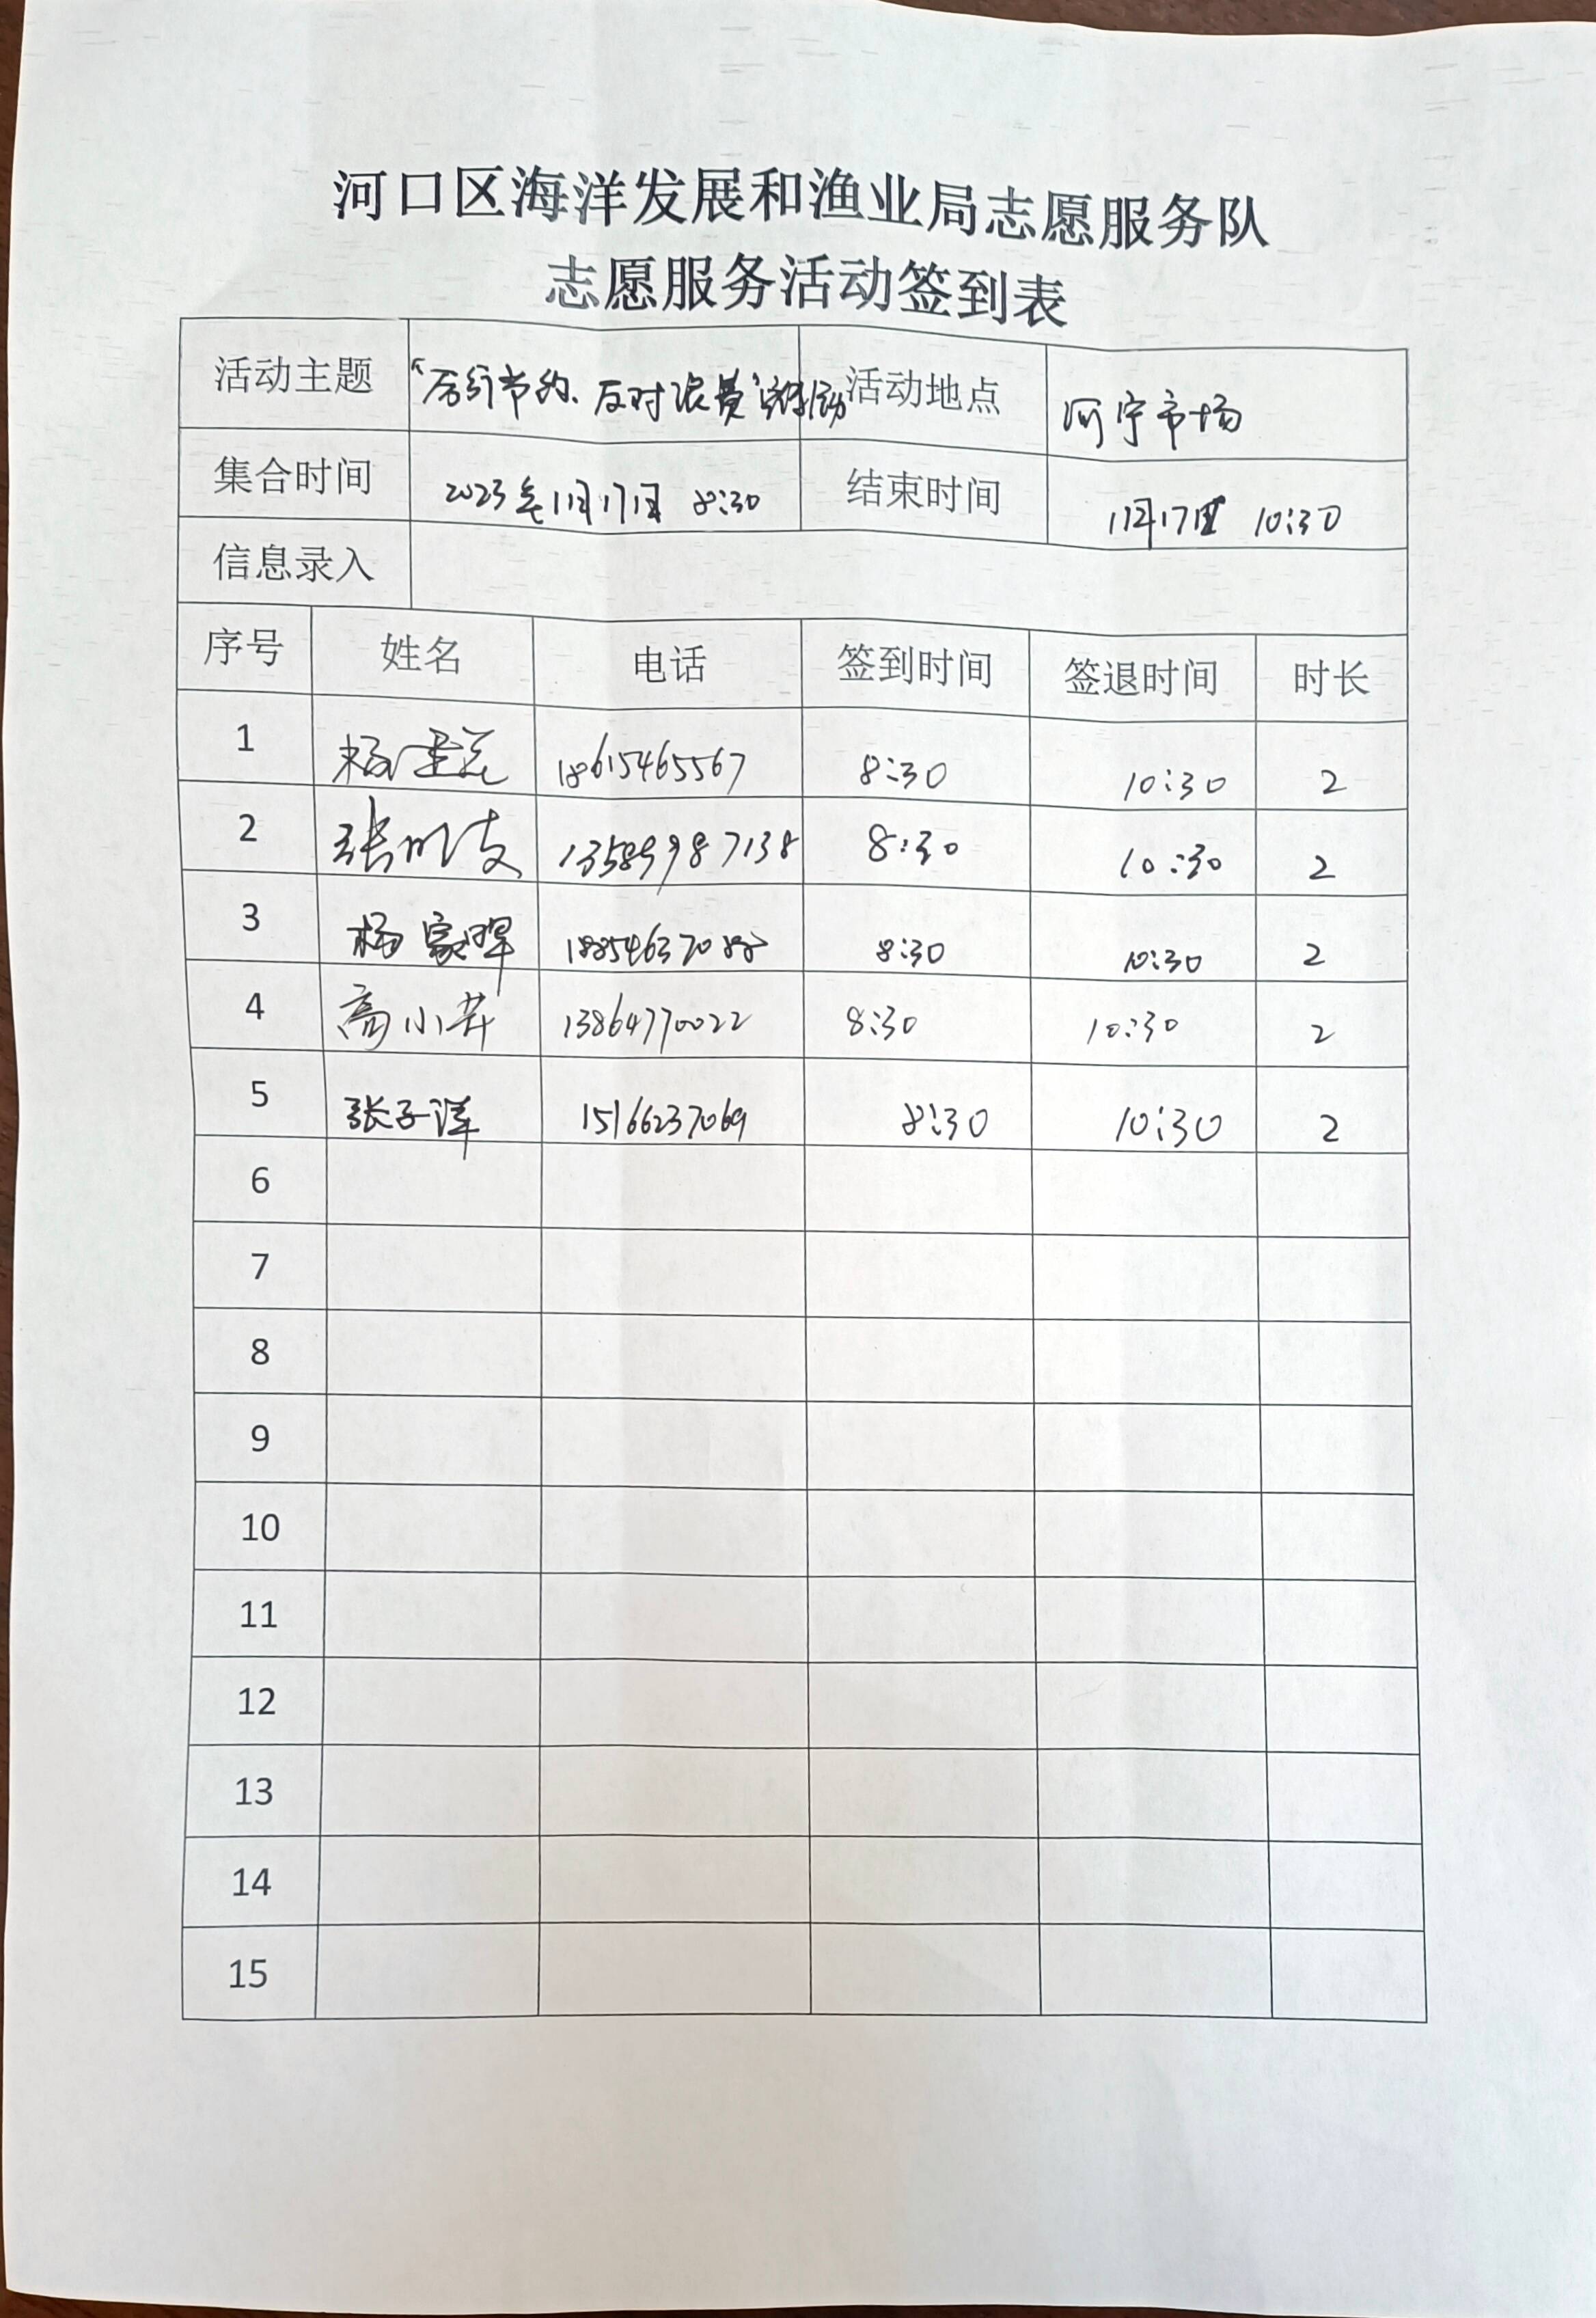 河口区海洋发展和渔业局志愿服务队
志愿服务活动签到表
活动主题 "厉行节约、反对浪费"宣传活动 活动地点 河宁市场
集合时间 2023年11月17日 8:30 结束时间 11月17日 10:30
信息录入
序号 姓名 电话 签到时间 签退时间 时长
1 杨 18615465567 8:30 10:30 2
2 张 13589987138 8:30 10:30 2
3 杨家 8:30 10:30 2
4 高小 13864770022 8:30 10:30 2
5 张子洋 15166237069 8:30 10:30 2
6
7
8
9
10
11
12
13
14
15